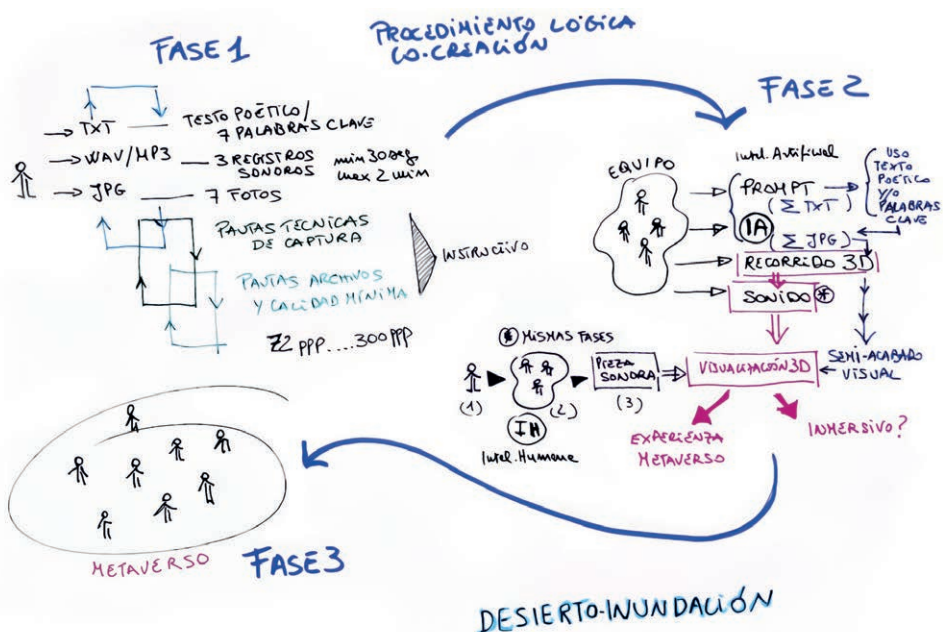 PROCEDIMIENTO LÓGICA
CO-CREACIÓN
FASE 1
TXT — TESTO POÉTICO/
7 PALABRAS CLAVE
WAV/MP3 — 3 REGISTROS
SONOROS
min 30 seg
max 2 mim
JPG — 7 FOTOS
PAUTAS TÉCNICAS
DE CAPTURA
PAUTAS ARCHIVOS
Y CALIDAD MÍNIMA
72 PPP....300 PPP
INSTRUCTIVO
FASE 2
EQUIPO
Intel. Artificial
PROMPT
(Σ TXT)
USO
TEXTO
POÉTICO
Y/O
PALABRAS
CLAVE
IA
(Σ JPG)
RECORRIDO 3D
SONIDO *
* MISMAS FASES
(1)
(2)
IH
Intel. Humana
PIEZA
SONORA
(3)
VISUALIZACIÓN 3D
SEMI-ACABADO
VISUAL
EXPERIENZA
METAVERSO
INMERSIVO?
METAVERSO
FASE 3
DESIERTO-INUNDACIÓN